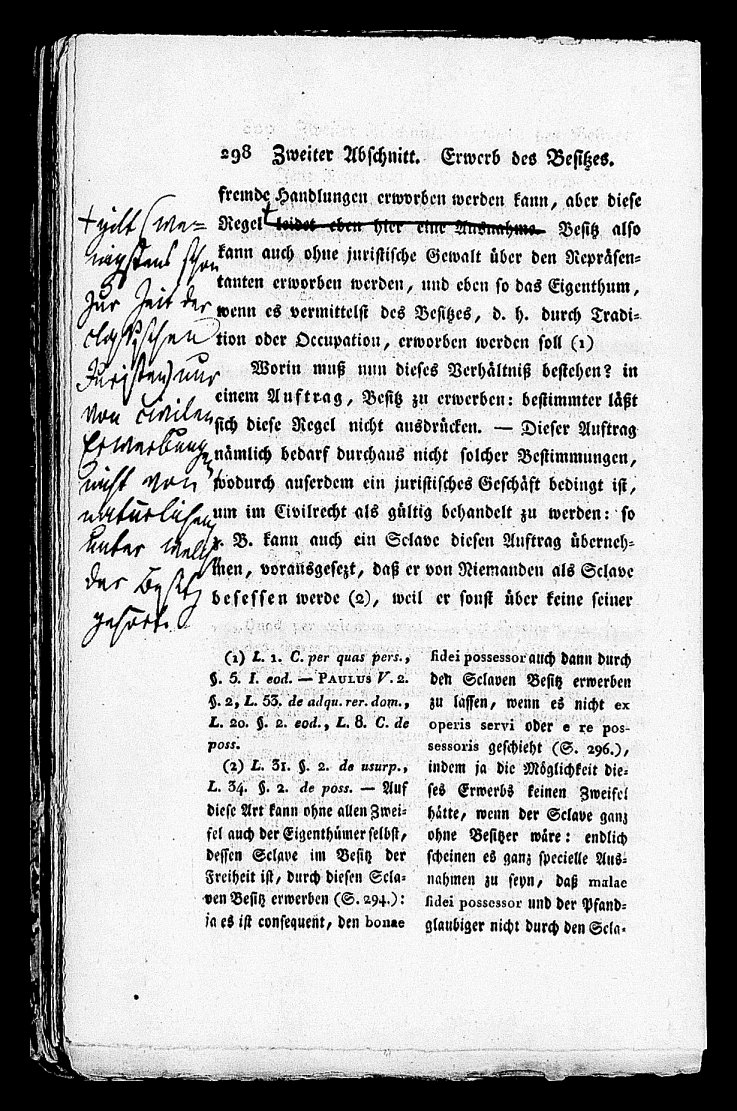 298 Zweiter Abschnitt. Erwerb des Besitzes.
fremde Handlungen erworben werden kann, aber diese
Regel leidet eben hier eine Ausnahme. Besitz also
kann auch ohne juristische Gewalt über den Repräsen-
tanten erworben werden, und eben so das Eigenthum,
wenn es vermittelst des Besitzes, d. h. durch Tradi-
tion oder Occupation, erworben werden soll (1)
Worin muß nun dieses Verhältniß bestehen? in
einem Auftrag, Besitz zu erwerben: bestimmter läßt
sich diese Regel nicht ausdrücken. — Dieser Auftrag
nämlich bedarf durchaus nicht solcher Bestimmungen,
wodurch auserdem ein juristisches Geschäft bedingt ist,
um im Civilrecht als gültig behandelt zu werden: so
z. B. kann auch ein Sclave diesen Auftrag überneh-
men, vorausgesezt, daß er von Niemanden als Sclave
besessen werde (2), weil er sonst über keine seiner
+ gilt (we-
nigstens schon
zur Zeit der
classischen
Juristen) nur
von civilen
Erwerbungen,
nicht von
natürlichen
unter welche
der Besitz
gehört.
(1) L. 1. C. per quas pers.,
§. 5. I. eod. — PAULUS V. 2.
§. 2, L. 53. de adqu. rer. dom.,
L. 20. §. 2. eod., L. 8. C. de
poss.
(2) L. 31. §. 2. de usurp.,
L. 34. §. 2. de poss. — Auf
diese Art kann ohne allen Zwei-
fel auch der Eigenthümer selbst,
dessen Sclave im Besitz der
Freiheit ist, durch diesen Scla-
ven Besitz erwerben (S. 294.):
ja es ist consequent, den bonae
fidei possessor auch dann durch
den Sclaven Besitz erwerben
zu lassen, wenn es nicht ex
operis servi oder e re pos-
sessoris geschieht (S. 296.),
indem ja die Möglichkeit die-
ses Erwerbs keinen Zweifel
hätte, wenn der Sclave ganz
ohne Besitzer wäre: endlich
scheinen es ganz specielle Aus-
nahmen zu seyn, daß malae
fidei possessor und der Pfand-
glaubiger nicht durch den Scla-